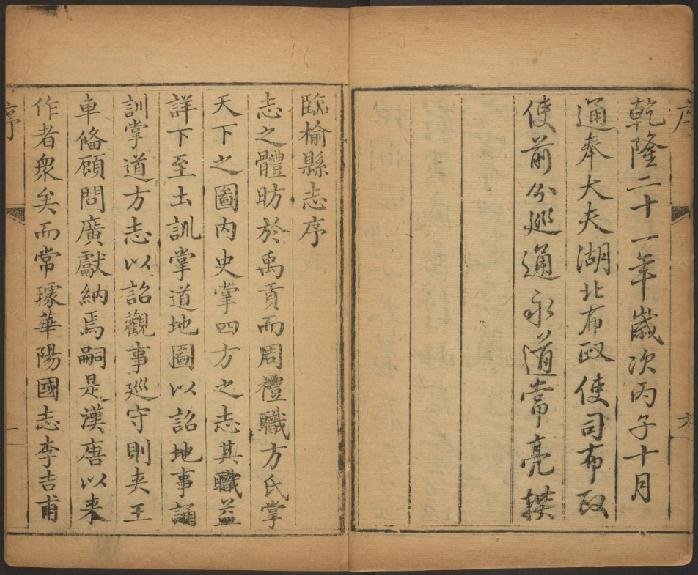 乾隆二十一年歲次丙子十月
通奉大夫湖北布政使司布政
使前分巡通永道常亮撰
臨榆縣志序
志之體昉於禹貢而周禮職方氏掌
天下之圖内史掌四方之志其職益
詳下至土訓掌道地圖以詔地事誦
訓掌道方志以詔觀事巡守則夾王
車俻顧問廣獻納焉嗣是漢唐以來
作者衆矣而常璩華陽國志李吉甫
序
一